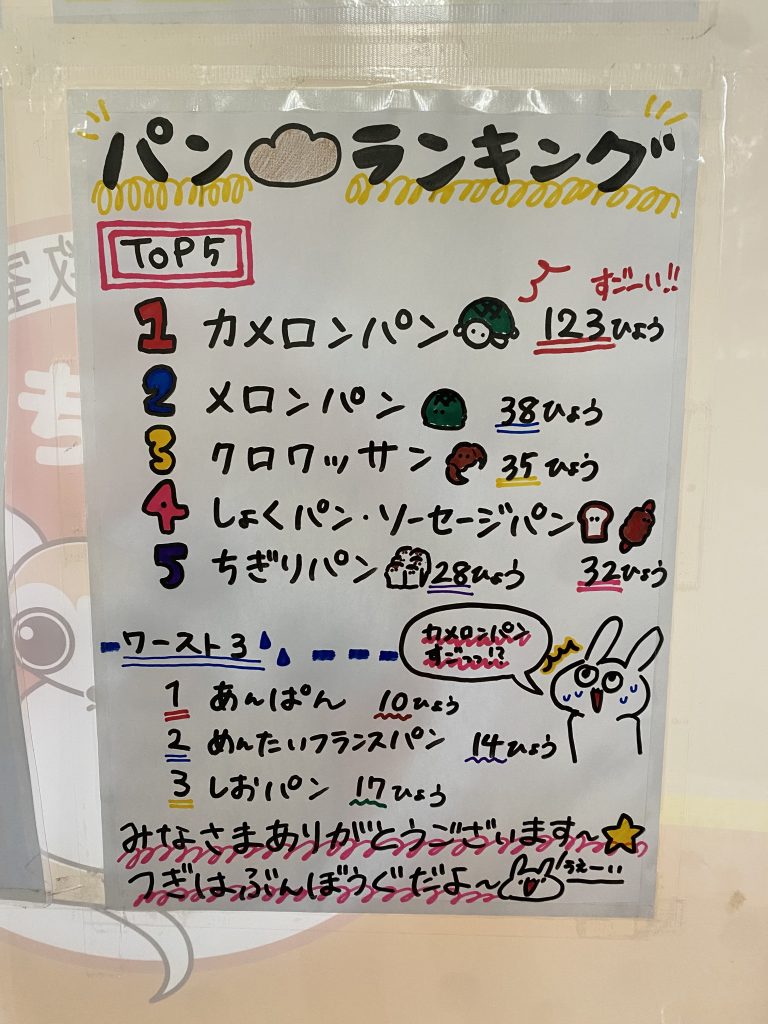 パンランキング
TOP5
すごーい!!
1 カメロンパン 123ひょう
2 メロンパン 38ひょう
3 クロワッサン 35ひょう
4 しょくパン・ソーセージパン 32ひょう
5 ちぎりパン 28ひょう
ワースト3
カメロンパン
すごっっ!?
1 あんぱん 10ひょう
2 めんたいフランスパン 14ひょう
3 しおパン 17ひょう
みなさまありがとうございます~
つぎはぶんぼうぐだよ~ うぇーい